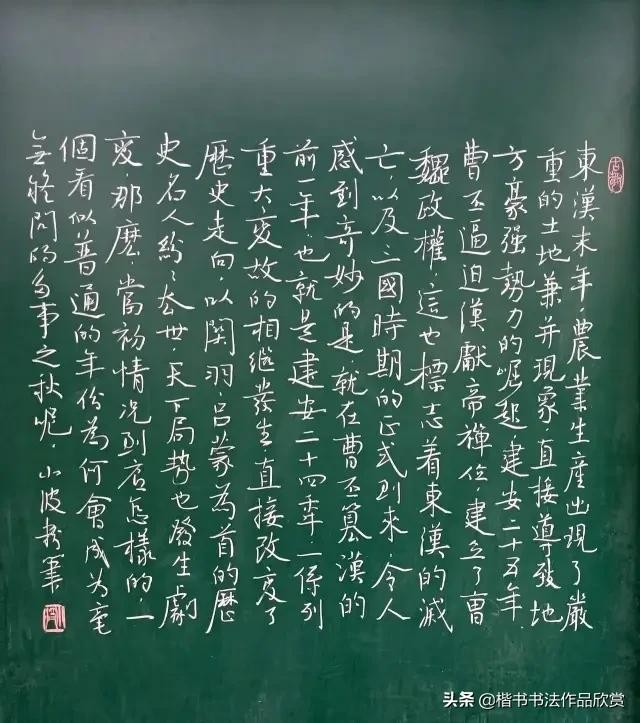 東漢末年，農業生産出現了嚴
重的土地兼并現象，直接導致地
方豪强勢力的崛起，建安二十五年，
曹丕逼迫漢獻帝禪位，建立了曹
魏政權，這也標志着東漢的滅
亡以及三國時期的正式到來，令人
感到奇妙的是就在曹丕篡漢的
前一年，也就是建安二十四年，一係列
重大變故的相繼發生，直接改變了
歷史走向，以関羽，吕蒙為首的歷
史名人紛〻去世，天下局勢也發生劇
變，那麽，當初情况到底怎樣的，一
個看似普通的年份為何會成為毫
無疑問的多事之秋呢，小波粉筆
头条 @楷书书法作品欣赏